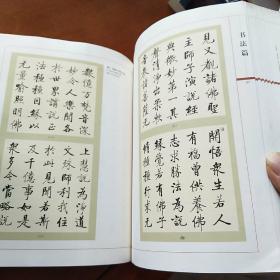 书法篇
見又覩諸佛聖
主師子演說經
典微妙第一其
聲清淨出柔軟
音教諸菩薩无
開悟衆生若人
有福曾供養佛
志求勝法為說
緣覺若有佛子
修種種行求无
數億万梵音深
妙令人樂聞各
於世界講說正
法種種因緣以
无量喻照明佛
上慧說為淨道
文殊師利我住
於此見聞若斯
及千億事如是
衆多今當略說